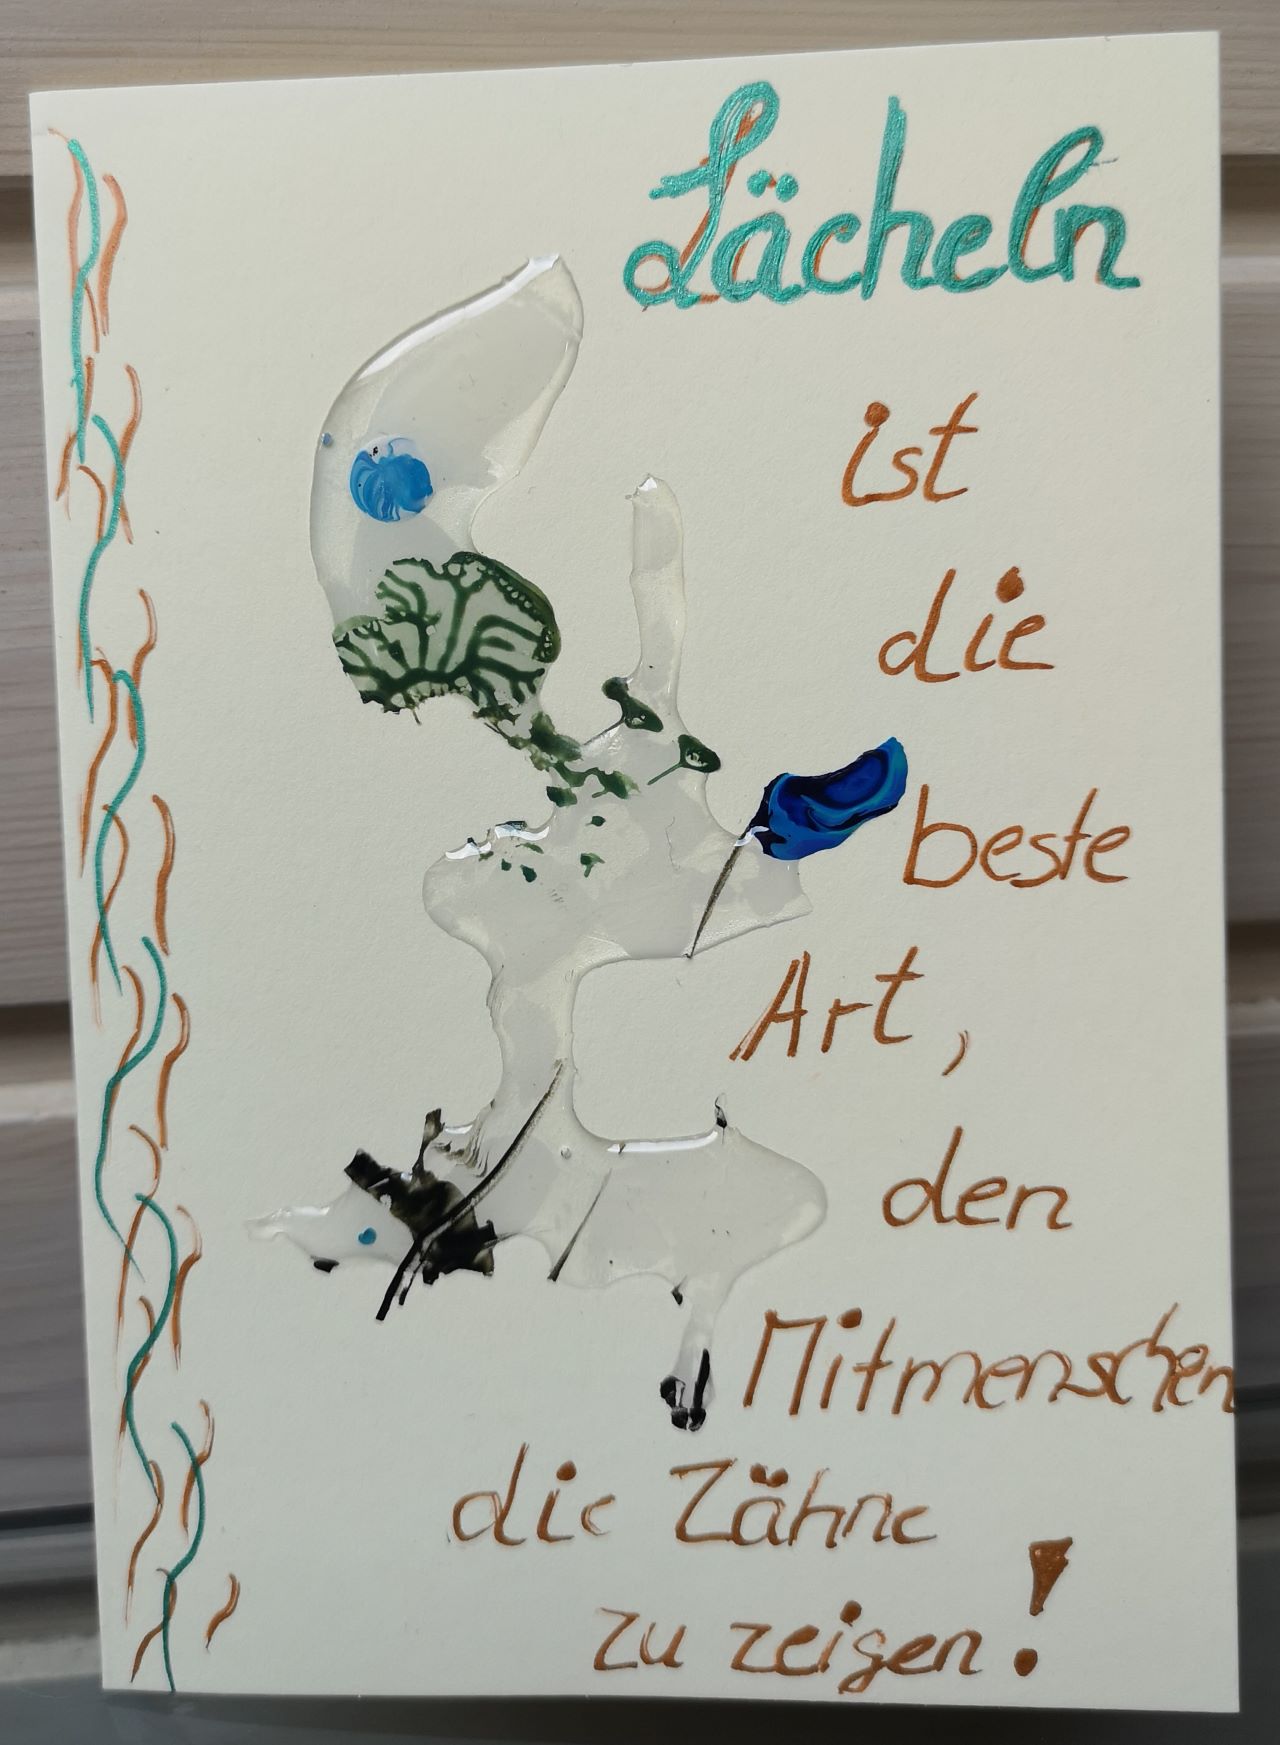 Lächeln
ist
die
beste
Art,
den
Mitmenschen
die Zähne
zu zeigen!